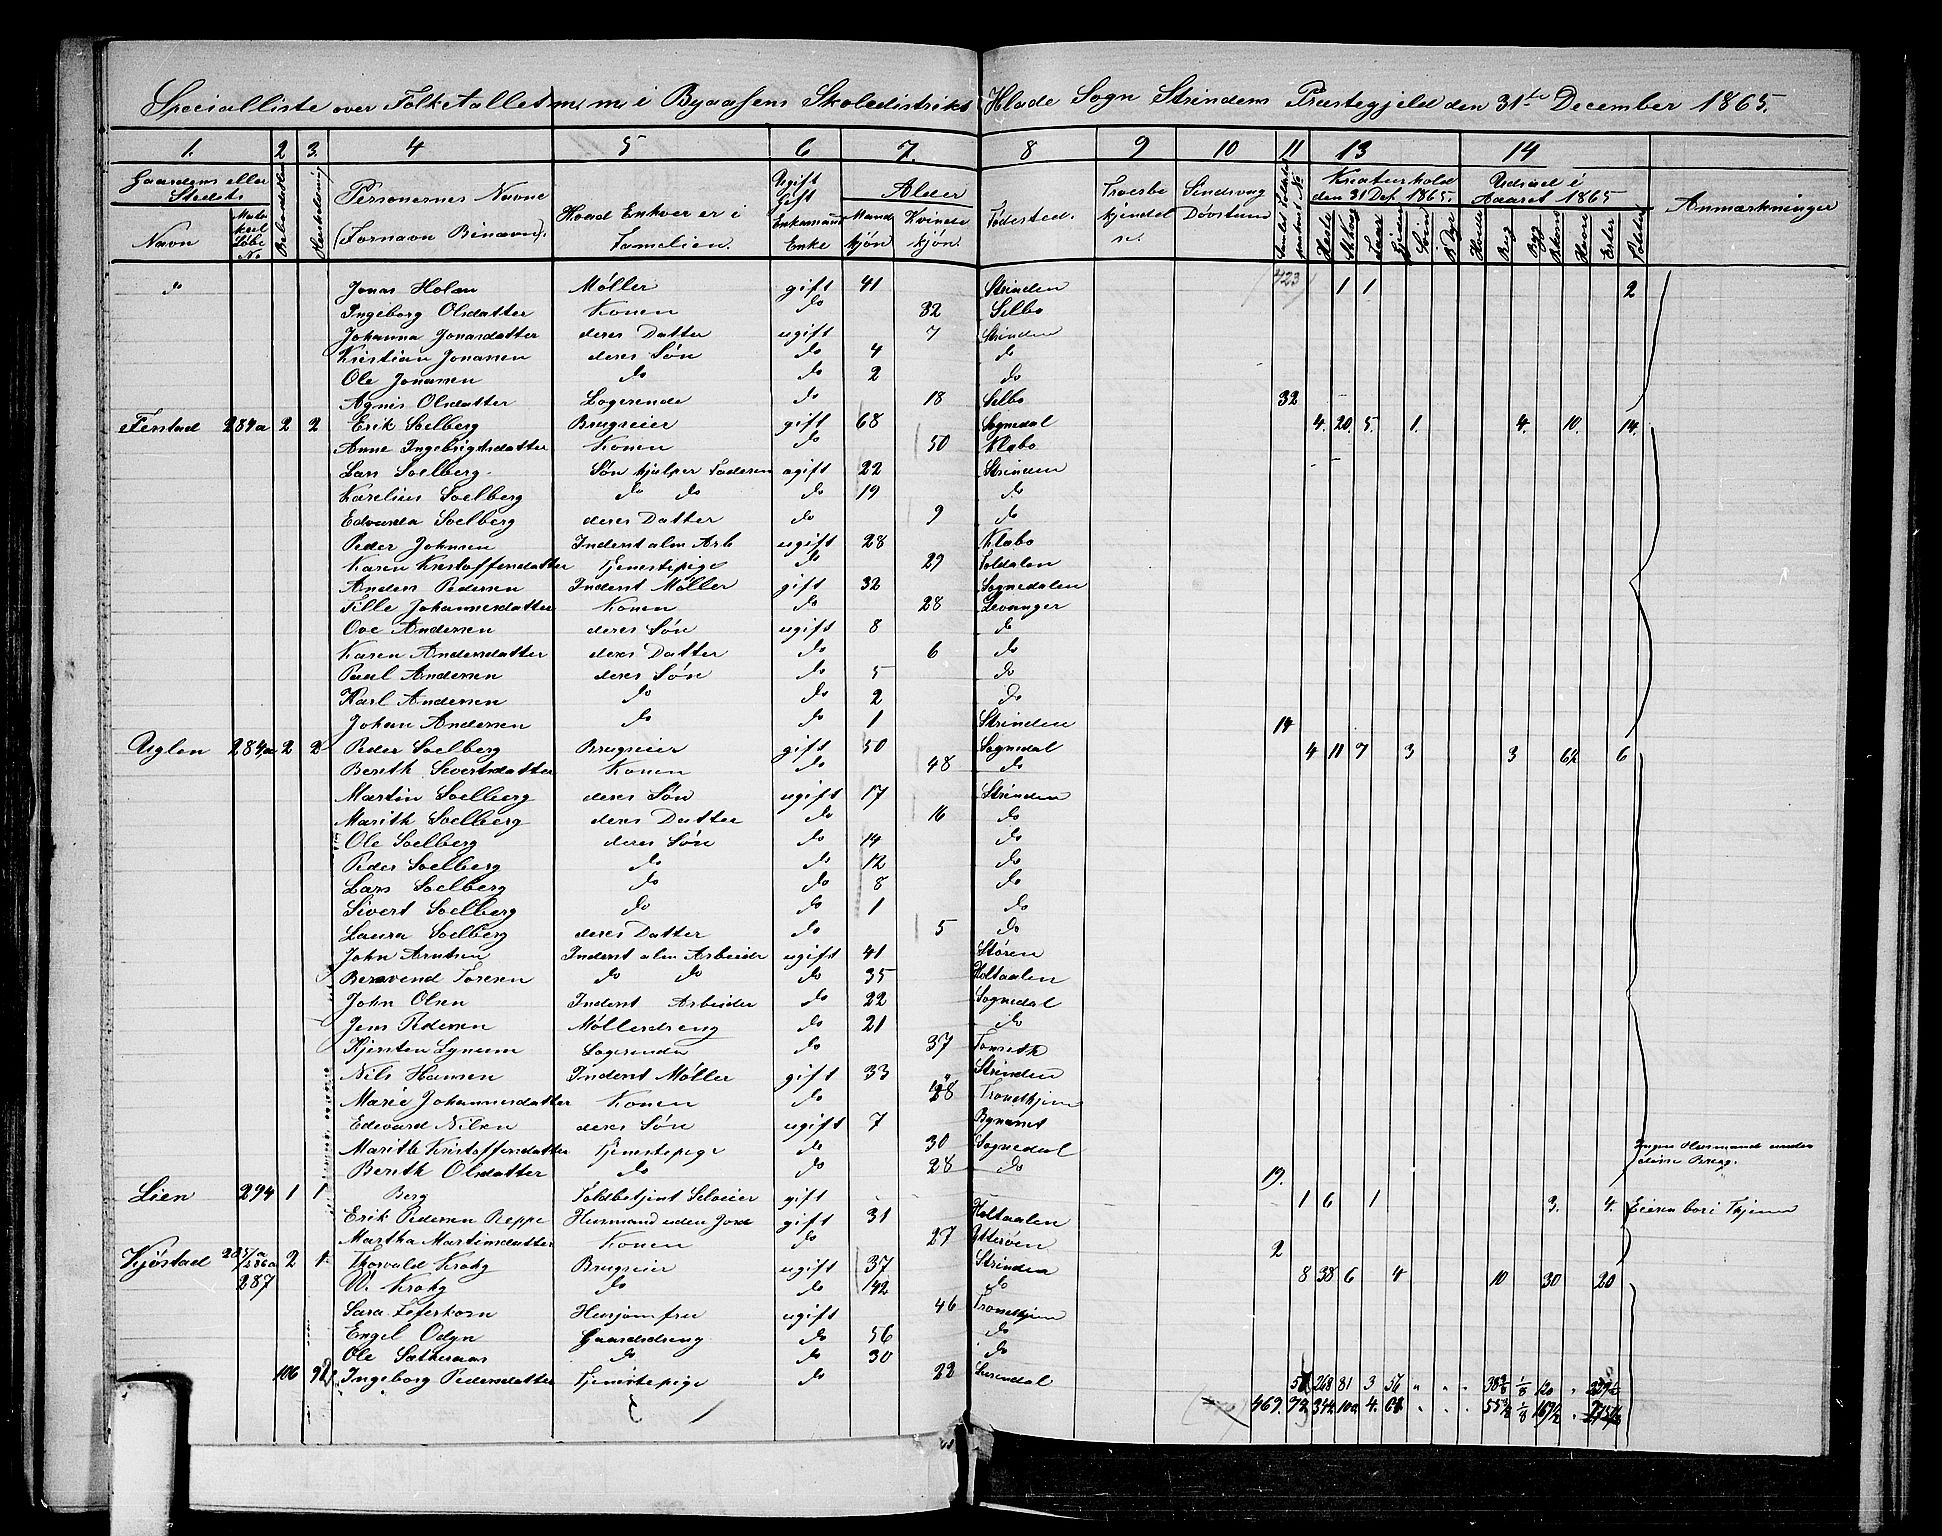 Specialliste over Folketallet m. m. i Byaasens Skoledistrikt Hlade Sogn Strindens Præstegjeld den 31te December 1865.
1. 2 3. 4 5 6 7. 8 9 10 11 13 14
Gaardens eller Stedets Navn Matrikul Løbe No Beboede Huse Husholdninger Personernes Navne (Fornavn Binavn). Hvad Enhver er i Familien. Ugift Gift Enkemand Enke Alder Mandkjøn Kvindekjøn. Fødested. Troesbekjendelse. Sindssvag Døvstum Kreaturhold den 31 Dec 1865. Udsæd i Aaret 1865 Anmærkninger
Heste St. Kvæg Faar Gjeder Sviin R Dyr Hvede Rug Byg Bkorn Havre Erter Poteter
do Jonas Holan Møller gift 41 Strinden (423) 1 1 2
Ingeborg Olsdatter Konen do 32 Selbo
Johanna Jonasdatter deres Datter ugift 7 Strinden
Kristian Jonassen deres Søn do 4 do
Ole Jonassen do do 2 do
Agnis Olsdatter Logerende do 18 Selbo 32
Ferstad 289a 2 2 Erik Soelberg Brugseier gift 68 Sognedal 4. 20. 5. 1. 4. 10. 14.
Anne Ingebrigtsdatter Konen do 50 Klæbo
Lars Soelberg. Søn hjælper Faderen ugift 22 Strinden
Karelius Soelberg do do do 19 do
Edvarda Soelberg deres Datter do 9 do
Peder Johnsen Inderst alm Arb ugift 28 Klæbo
Karen Kristoffersdatter Tjenestepige do 29 Soldalen
Anders Pedersen Inderst Møller gift 32 Sognedalen
Fille Johannesdatter Konen do 28 Levanger
Ove Andersen deres Søn ugift 8 do
Karen Andersdatter deres Datter do 6 do
Paul Andersen deres Søn do 5 do
Karl Andersen do do 2 do
Johan Andersen do do 1 Strinden 14
Uglen 284a 2 2 Peder Soelberg Brugseier gift 50 Sognedal 4 11 7 3 3 6½ 6
Berith Sivertsdatter Konen do 48 do
Martin Soelberg deres Søn ugift 17 Strinden
Marith Soelberg deres Datter do 16 do
Ole Soelberg deres Søn do 14 do
Peder Soelberg do do 12 do
Lars Soelberg do do 8 do
Sivert Soelberg do do 1 do
Laura Soelberg deres Datter do 5 do
John Arntsen Inderst alm Arbeider ugift 41 Støren
Beravend Toresen do do do 35 Holtaalen
John Olsen Inderst Arbeider do 22 Sognedal
Jens Pedersen Møllerdreng do 21 do
Kjersten Lynum Logerende do 37 Tomseth
Nils Hansen Inderst Møller gift 33 Strinden
Marie Johannesdatter Konen do 28 Trondhjem
Edevard Nilsen deres Søn ugift 7 Bynæsset
Marith Kristoffersdatter Tjenestepige do 30 Sognedal Ingen Husmand under
Berith Olsdatter do do 28 do 19. denne Brug.
Lien 294 1 1 Berg Toldbetjent Selveier gift 1 6 1 3. 4. Eieren bor i Thjem
Erik Pedersen Reppe Husmand uden Jord gift 31 Holtaalen
Martha Martinsdatter Konen do 27 Ytterøen 2
Kjøstad 285/a /286a 2 1. Thorvald Krohg Brugseier ugift 37 Strinden
287 W. Krohg do do 42 do 8 38 6 4 10 30 20
Sara Feterkorn Husjomfru ugift 46 Trondhjem
Engel Odyn Gaardsdreng do 56 do
Ole Sætheraas do do 30 do
106 92 Ingeborg Pedersdatter Tjenestepige do 22 Surendal 268 81 3 56
469. 72 342 102 4.